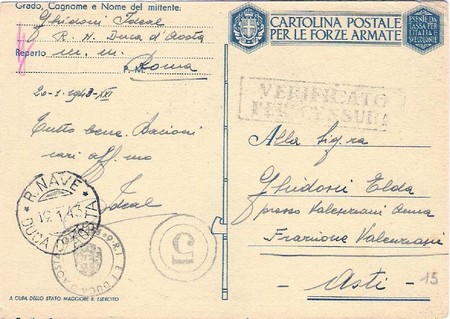 Grado, Cognome e Nome del mittente.
Ghidoni Ideal
R. N. Duca d'Aosta
Reparto M. M.
P. M. Roma
20-1-1943-XXI
Tutto bene. Bacioni
cari aff.mo
Ideal
R. NAVE
19.1.43
DUCA D'AOSTA
5
A CURA DELLO STATO MAGGIORE R. ESERCITO
CARTOLINA POSTALE
PER LE FORZE ARMATE
VERIFICATO
PER CENSURA
Alla Sig.ra
Ghidoni Elda
presso Valenzani Anna
Frazione Valenzani
Asti
15